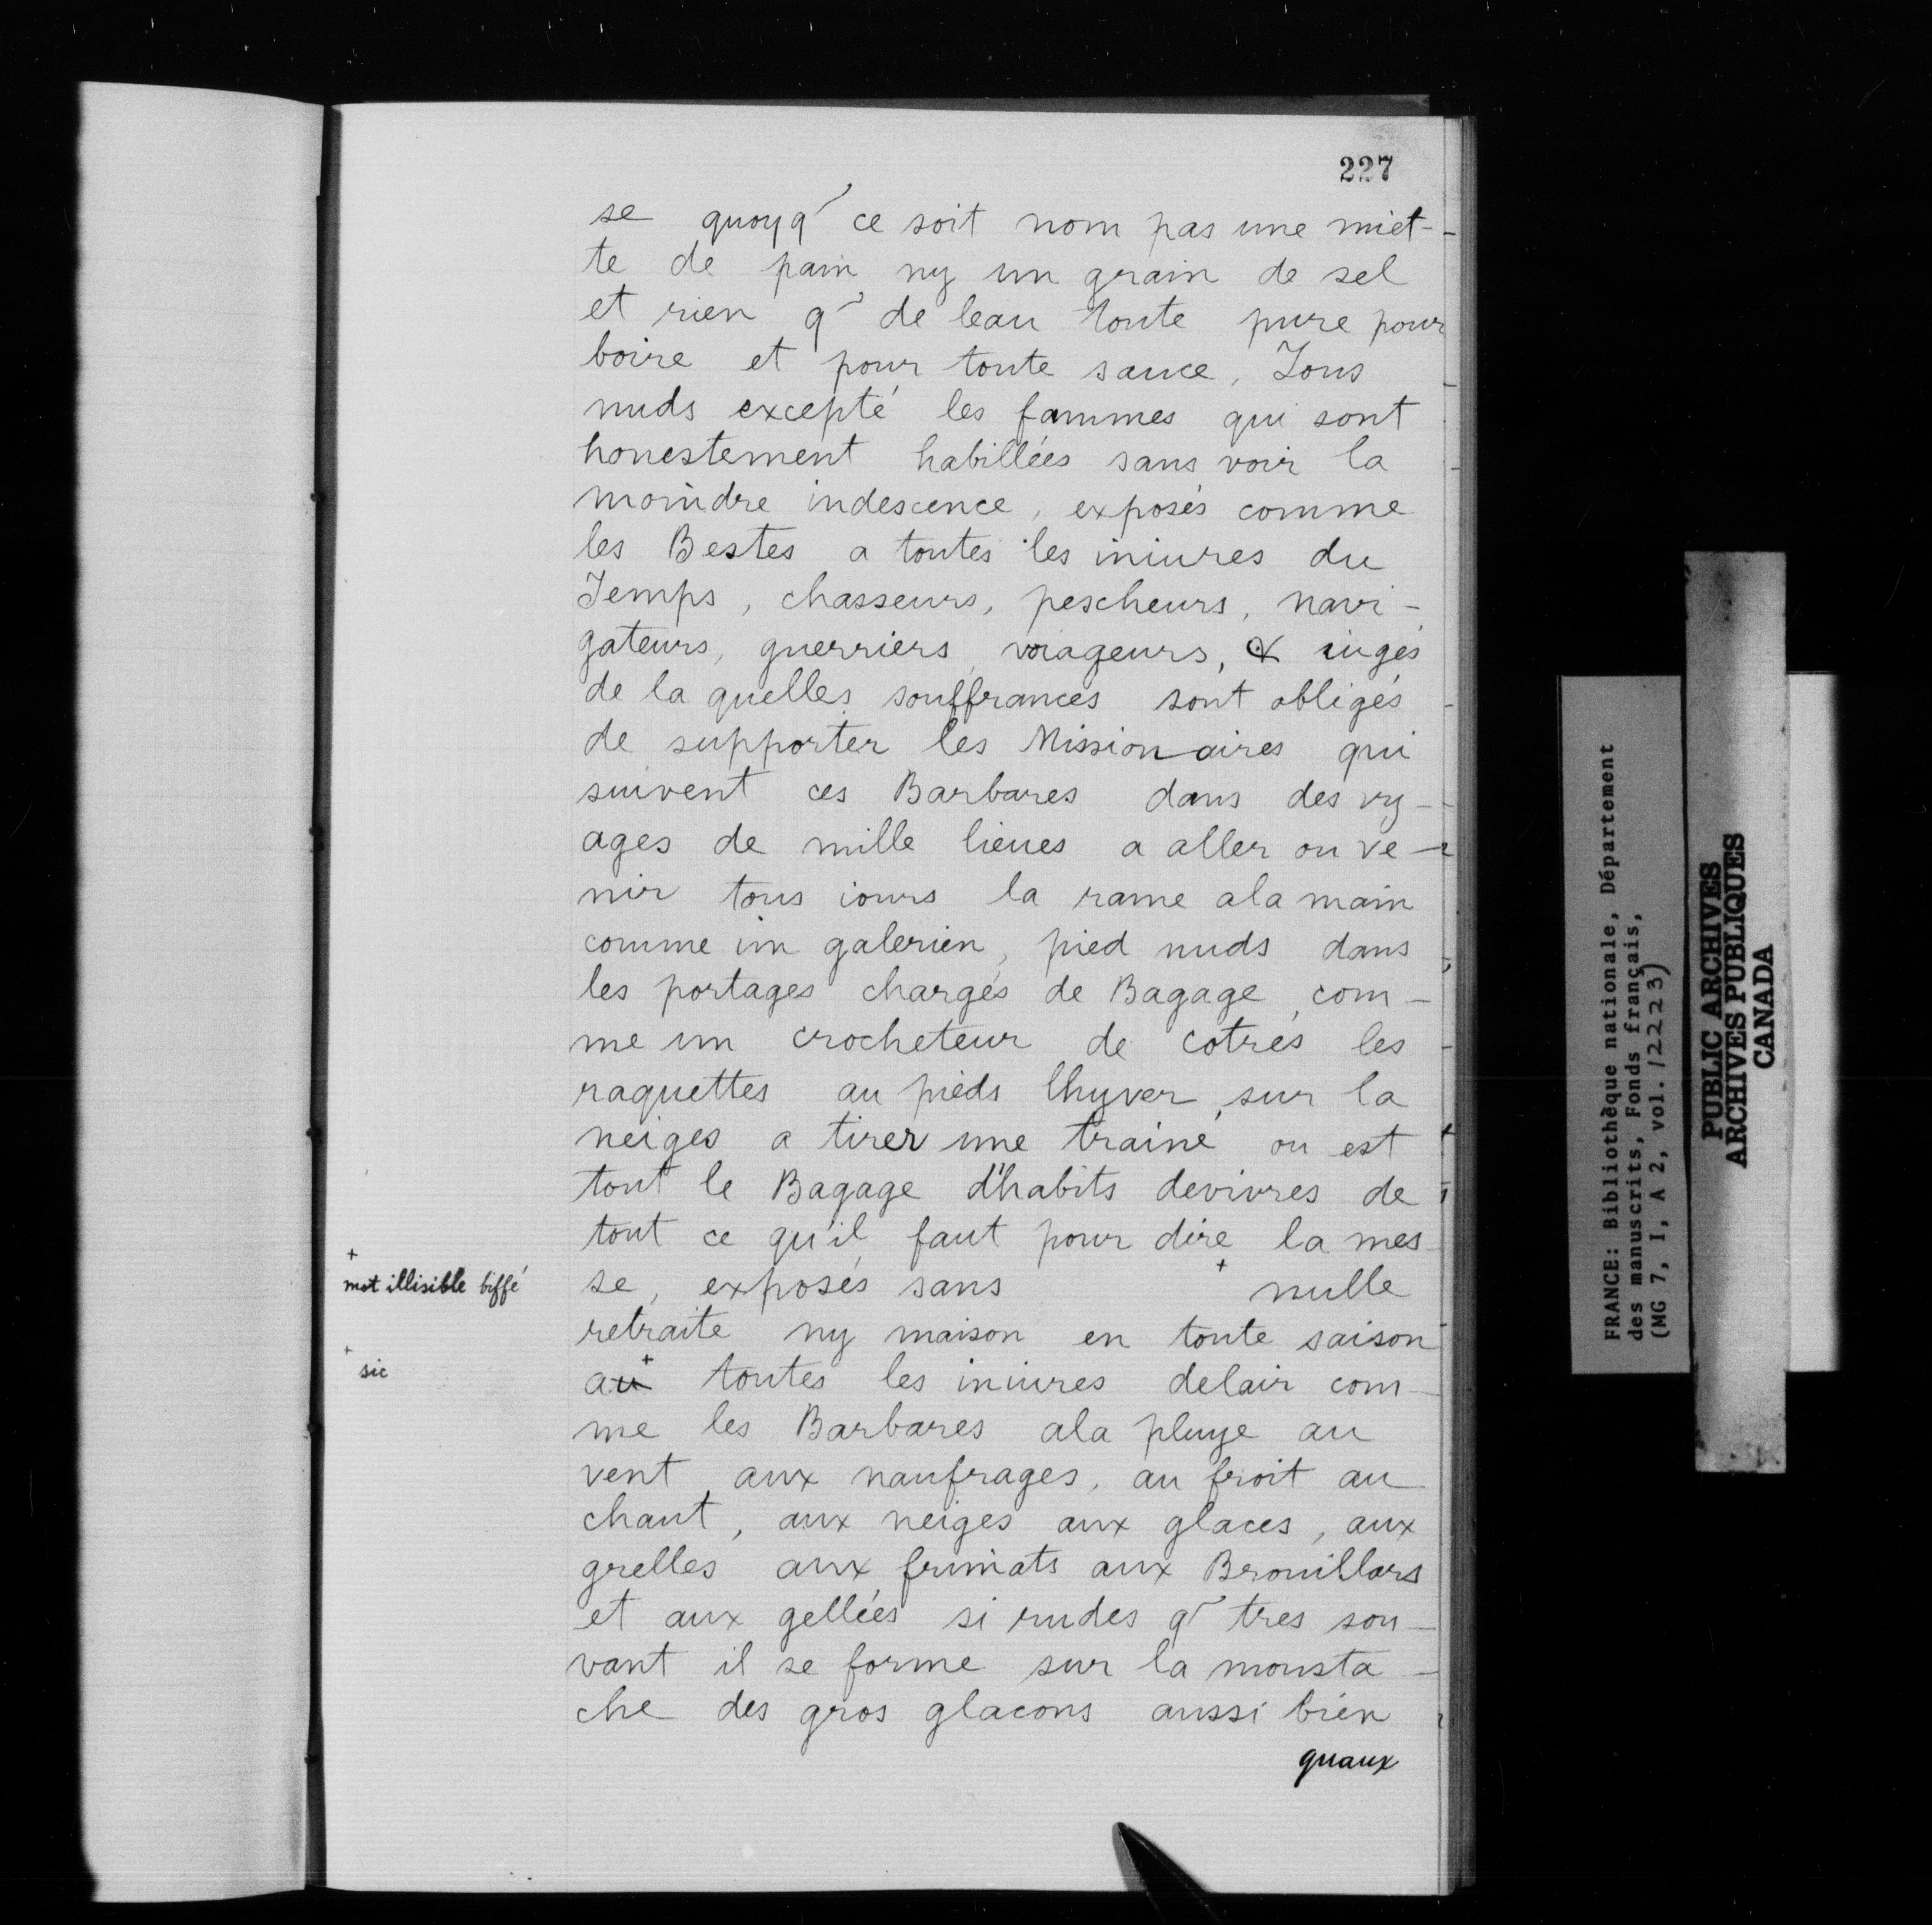 227
se quoyq̃ ce soit nom pas une miet-
te de pain ny un grain de sel
et rien q̃ de leau toute pure pour
boire et pour toute sauce, Tous
nuds excepté les fammes qui sont
honestement habillées sans voir la
moindre indescence, exposés comme
les Bestes a toutes les iniures du
Temps, chasseurs, pescheurs, navi-
gateurs, guerriers, voiageurs, & iugés
de la quelles souffrances sont obligés
de supporter les Missionaires qui
suivent ces Barbares dans des vy-
ages de mille lieues a aller ou ve-
nir tous iours la rame ala main
comme un galerien, pied nuds dans
les portages chargés de Bagage, com-
me un crocheteur de cotrés les
raquettes au pieds lhyver, sur la
neiges a tirer une trainé ou est
tout le Bagage d'habits devivres de
tout ce qu'il faut pour dire la mes
+
mot illisible biffé
se, exposés sans + nulle
retraite ny maison en toute saison
+
sic
au+ toutes les iniures delair com-
me les Barbares ala pluye au
vent, aux naufrages, au froit au
chaut, aux neiges aux glaces, aux
grelles aux frimats aux Brouillars
et aux gellées si rudes q̃ tres sou-
vant il se forme sur la mousta-
che des gros glacons aussi bien
quaux
FRANCE: Bibliothèque nationale, Département
des manuscrits, Fonds français,
(MG 7, I, A 2, vol. 12223)
PUBLIC ARCHIVES
ARCHIVES PUBLIQUES
CANADA